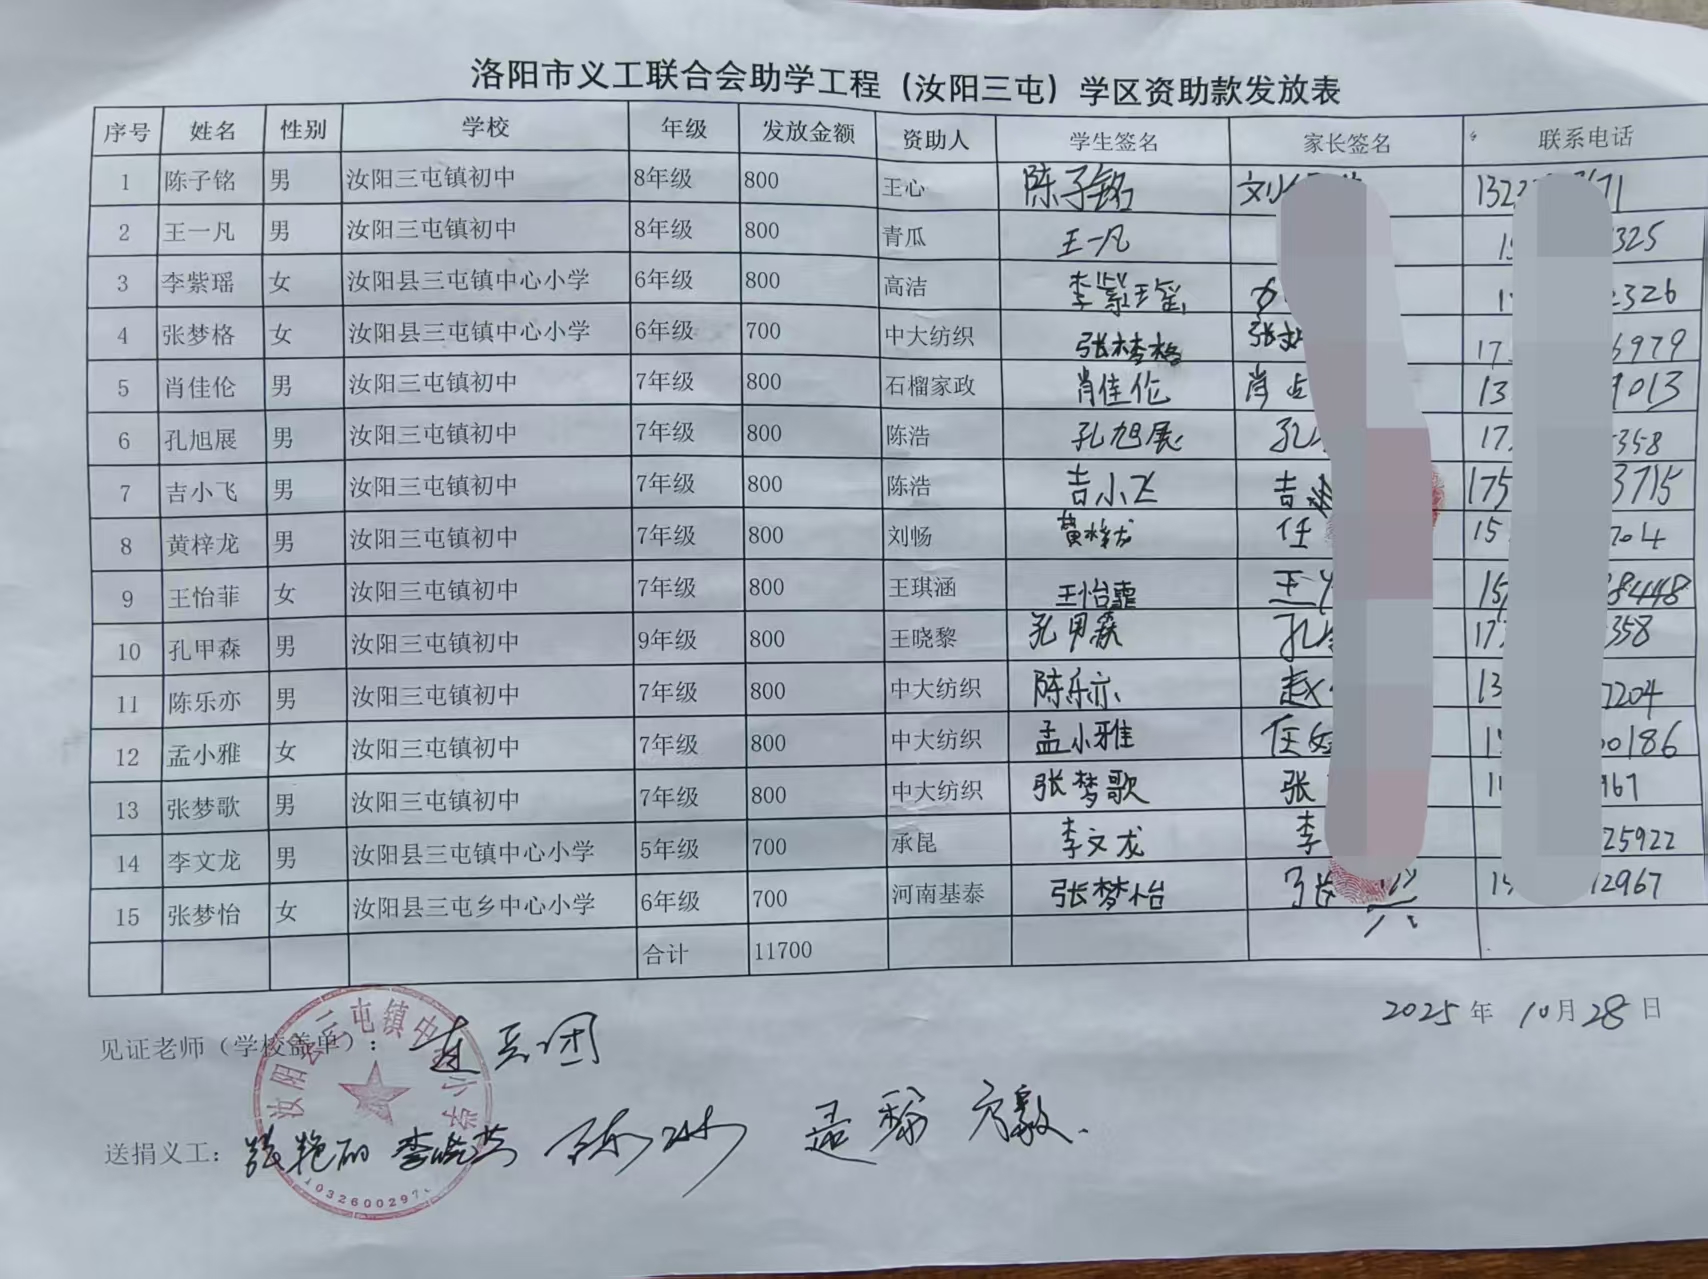 洛阳市义工联合会助学工程（汝阳三屯）学区资助款发放表
序号 姓名 性别 学校 年级 发放金额 资助人 学生签名 家长签名 联系电话
1 陈子铭 男 汝阳三屯镇初中 8年级 800 王心 陈子铭 刘 132 71
2 王一凡 男 汝阳三屯镇初中 8年级 800 青瓜 王一凡 325
3 李紫瑶 女 汝阳县三屯镇中心小学 6年级 800 高洁 李紫瑶 2326
4 张梦格 女 汝阳县三屯镇中心小学 6年级 700 中大纺织 张梦格 张 17 6979
5 肖佳伦 男 汝阳三屯镇初中 7年级 800 石榴家政 肖佳伦 肖占 13 9013
6 孔旭展 男 汝阳三屯镇初中 7年级 800 陈浩 孔旭展 孔 17 358
7 吉小飞 男 汝阳三屯镇初中 7年级 800 陈浩 吉小飞 吉 175 3715
8 黄梓龙 男 汝阳三屯镇初中 7年级 800 刘畅 黄梓龙 任 15 204
9 王怡菲 女 汝阳三屯镇初中 7年级 800 王琪涵 王怡霏 王 15 84448
10 孔甲森 男 汝阳三屯镇初中 9年级 800 王晓黎 孔甲森 孔 17 358
11 陈乐亦 男 汝阳三屯镇初中 7年级 800 中大纺织 陈乐亦 赵 13 7204
12 孟小雅 女 汝阳三屯镇初中 7年级 800 中大纺织 孟小雅 任 1 00186
13 张梦歌 男 汝阳三屯镇初中 7年级 800 中大纺织 张梦歌 张 1 967
14 李文龙 男 汝阳县三屯镇中心小学 5年级 700 承昆 李文龙 李 25922
15 张梦怡 女 汝阳县三屯乡中心小学 6年级 700 河南基泰 张梦怡 张 15 12967
合计 11700
2025年 10月28日
见证老师（学校盖单）：
汝阳县三屯镇中心小学
送捐义工： 张艳丽 李晓燕